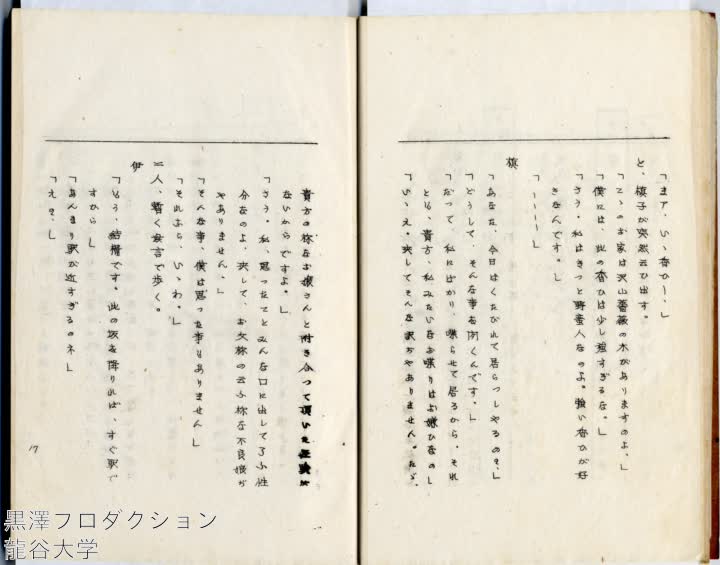 「まア、いゝ香ひー、」
と、槇子が突然云ひ出す。
「こゝのお家は沢山薔薇の木がありますのよ、」
「僕には、此の香ひは少し強すぎるな。」
「さう、私はきっと野蛮人なのよ。強い香ひが好
きなんです。」
「ーーーー」
槇
「あなた、今日はくたびれて居らっしやるの？、」
「どうして、そんな事を聞くんです。」
「だって、私にばかり、喋らせて居るから、それ
とも、貴方、私みたいなお喋りはお嫌ひなのし
「いゝえ。決してそんな訳ぢやありません。たゞ、
貴方の様なお嬢さんと附き合つて頂いた経験が
ないからですよ。」
「さう。私、思ったことみんな口に出して了ふ性
分なのよ、決して、お父様の云ふ様な不良娘ぢ
やありません、」
「そんな事、僕は思った事もありません」
「それなら、いゝわ。」
二人、暫く無言で歩く。
伊
「もう、結構です。此の坂を降りれば、すぐ駅で
すから」
「あんまり駅が近すぎるのネ」
「え？、」
17
黒澤プロダクション
龍谷大学